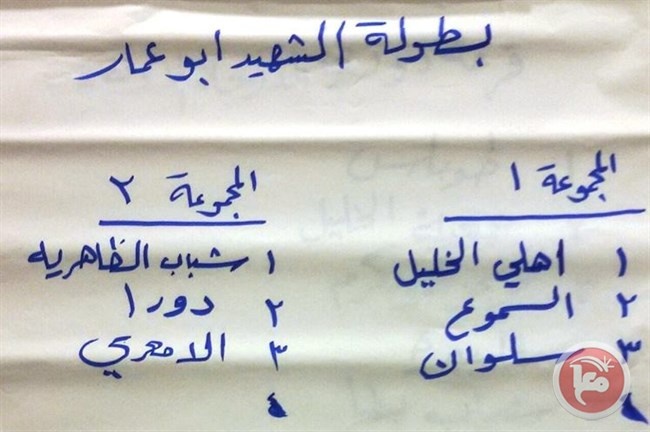 بطولة الشهيد ابو عمار
المجموعة ١
١ اهلي الخليل
٢ السموع
٣ سلوان
٤
المجموعة ٢
١ شباب الظاهريه
٢ دورا
٣ الامعري
٤
معا